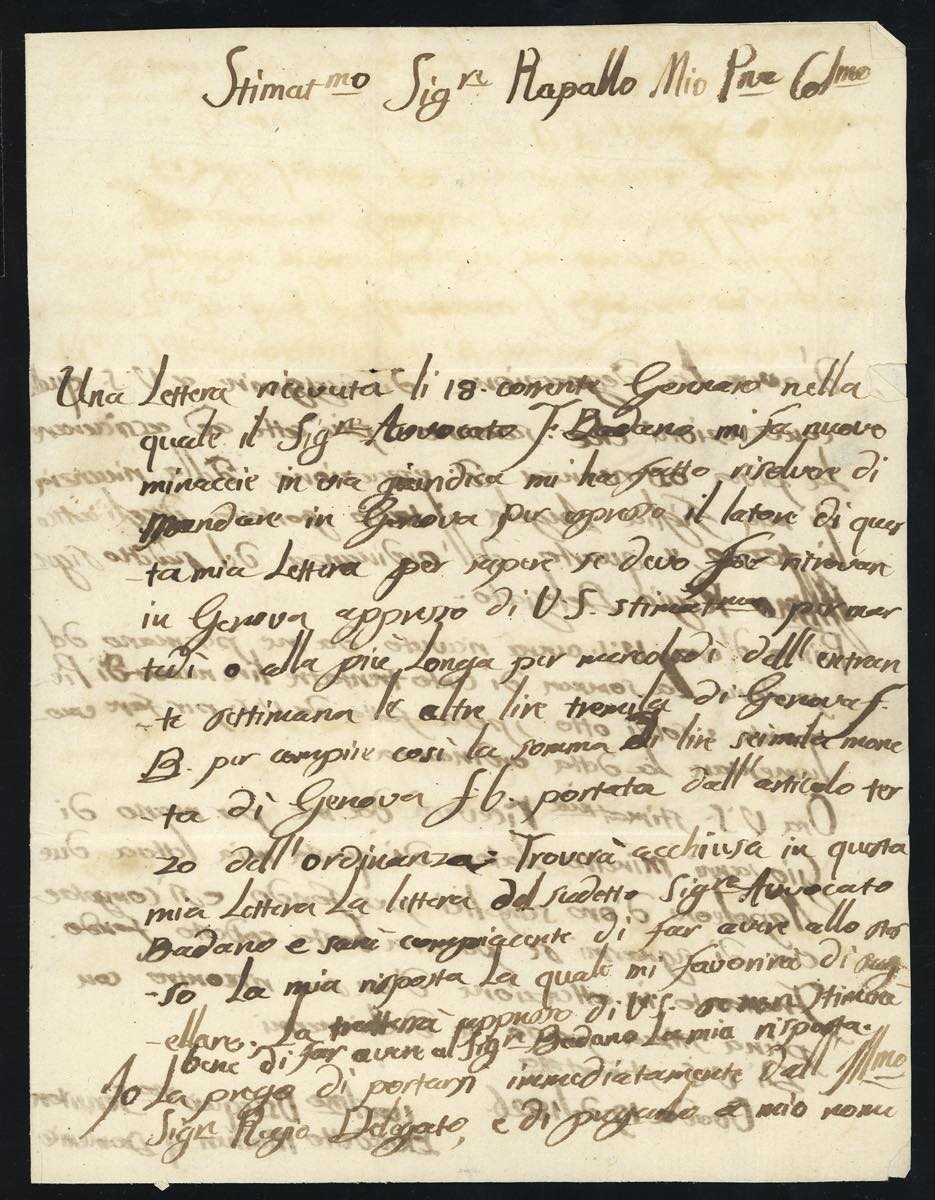 Stimat.mo Sig.re Rapallo Mio P.ne Col.mo
Una Lettera ricevuta li 18. corrente Gennaro nella
quale il Sig.re Avvocato F: Badano mi fa nuovo
minaccie in via giuridica mi ha fatto risolvere di
mandare in Genova per espresso il latore di ques
-ta mia Lettera per sapere se devo far ritrovare
in Genova appresso di V S. stimat.ma per mar
-tedì o alla più Longa per mercoledì dell' entran
-te settimana le altre lire tremila di Genova f.
B. per compire così la somma di lire seimila mone
-ta di Genova f. b. portata dall' articolo ter
zo dell' ordinanza: Troverà acchiusa in questa
mia Lettera La lettera del sudetto Sig.re Avvocato
Badano e sarà compiacente di far avere allo stes
-so La mia risposta La quale mi favorirà di sugg
-ellare. La tratterrà appresso di V. S. se non stimerà
bene di far avere al Sig.r Badano La mia risposta.
Io La prego di portarsi immediatamente dall' Ill.mo
Sig.r Regio Delegato, e di pregarlo a mio nome